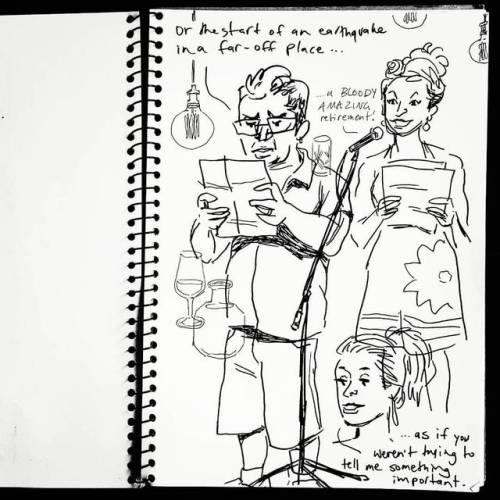 Or the start of an earthquake
in a far-off place...
...a BLOODY
AMAZING
retirement!
...as if you
weren't trying to
tell me something
important.